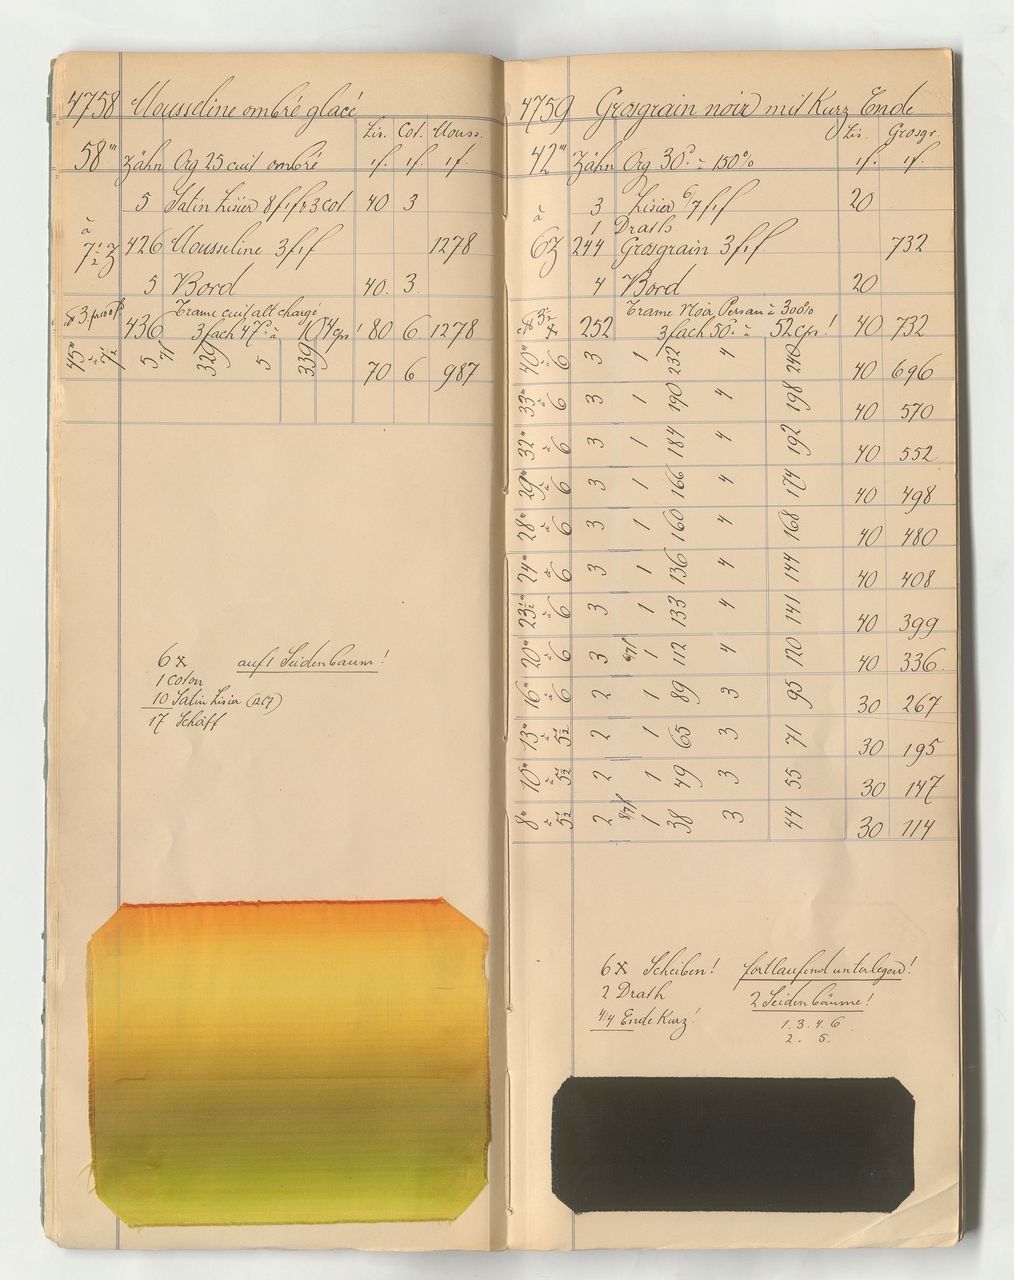 4758 Mousseline ombré glacé
Lis. Col. Mouss.
58''' Zähn Org 25 cuit ombré 1f. 1f. 1f.
5 Satin Lisier 8f,f & 3 col. 40 3
à 7½ Z 426 Mousseline 3f,f 1278
5 Bord 40. 3.
Trame cuit alt chargé
436 3fach 47° à 104 cps! 80 6 1278
45''' à 7½ 5 71 329 5 339 70 6 987
6 x auf 1 Seidenbaum!
1 coton
10 Satin Lisier (1267)
17 Schäft
4759 Grosgrain noir mit Kurz Ende
Lis. Grosgr.
42''' Zähn Org 30° à 150% 1f. 1f.
3 Lisier 6/7 f,f 20
1 Drath
à 6Z 244 Grosgrain 3f,f 732
4 Bord 20
Trame Noir Persan à 300%
252 3fach 50° à 52 cps! 40 732
40''' à 6 3 1 232 4 240 40 696
33''' à 6 3 1 190 4 198 40 570
32''' à 6 3 1 184 4 192 40 552
29''' à 6 3 1 166 4 174 40 498
28''' à 6 3 1 160 4 168 40 480
24''' à 6 3 1 136 4 144 40 408
23½''' à 6 3 1 133 4 141 40 399
20''' à 6 3 1 112 4 120 40 336
16''' à 6 2 1 89 3 95 30 267
13''' à 5½ 2 1 65 3 71 30 195
10''' à 5½ 2 1 49 3 55 30 147
8''' à 5½ 2 1 38 3 44 30 114
6 x Scheiben! fortlaufend unterlegend!
2 Drath 2 Seidenbäume!
44 Ende Kurz! 1. 3. 4. 6
2. 5.